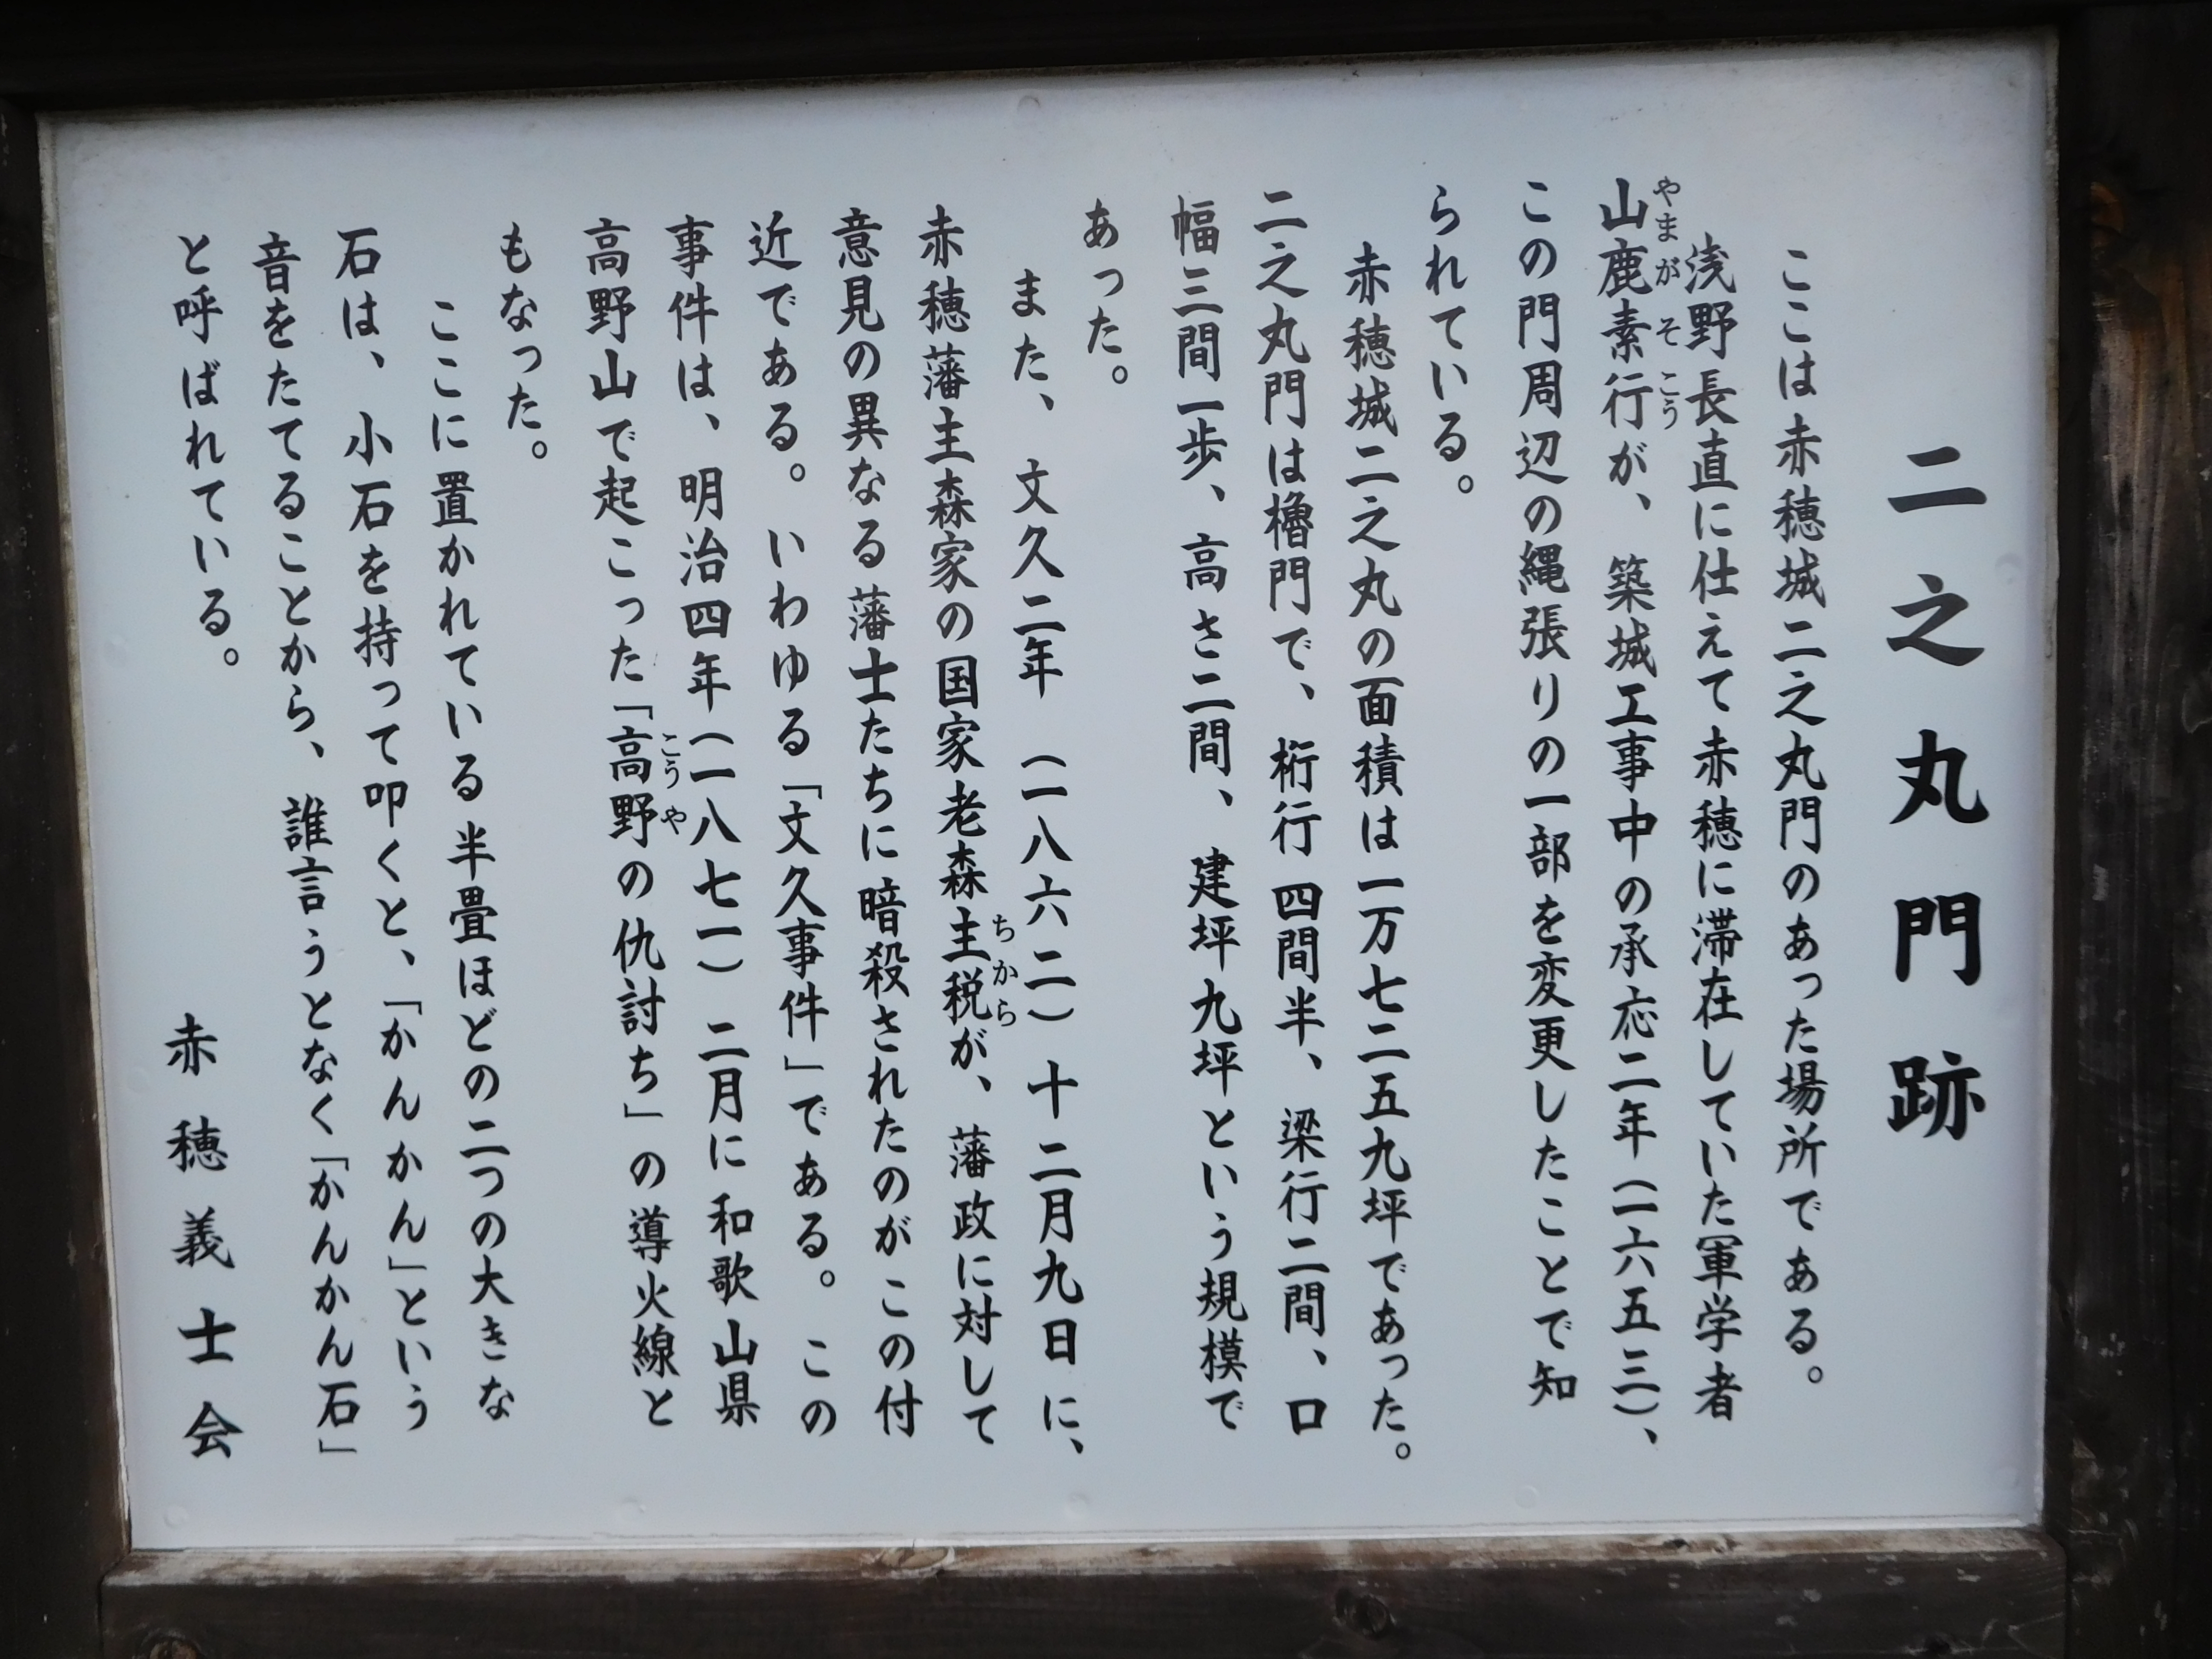 二之丸門跡
ここは赤穂城二之丸門のあった場所である。
浅野長直に仕えて赤穂に滞在していた軍学者
山鹿素行が、築城工事中の承応二年（一六五三）、
やまがそこう
この門周辺の縄張りの一部を変更したことで知
られている。
赤穂城二之丸の面積は一万七二五九坪であった。
二之丸門は櫓門で、桁行四間半、梁行二間、口
幅三間一歩、高さ二間、建坪九坪という規模で
あった。
また、文久二年（一八六二）十二月九日に、
赤穂藩主森家の国家老森主税が、藩政に対して
ちから
意見の異なる藩士たちに暗殺されたのがこの付
近である。いわゆる「文久事件」である。この
事件は、明治四年（一八七一）二月に和歌山県
高野山で起こった「高野の仇討ち」の導火線と
こうや
もなった。
ここに置かれている半畳ほどの二つの大きな
石は、小石を持って叩くと、「かんかん」という
音をたてることから、誰言うとなく「かんかん石」
と呼ばれている。
赤穂義士会